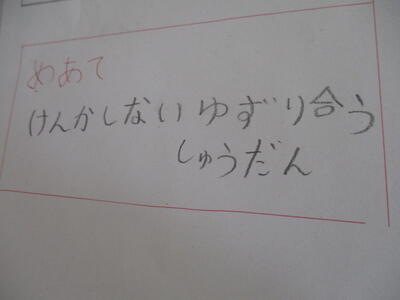 めあて
けんかしない ゆずり合う
しゅうだん